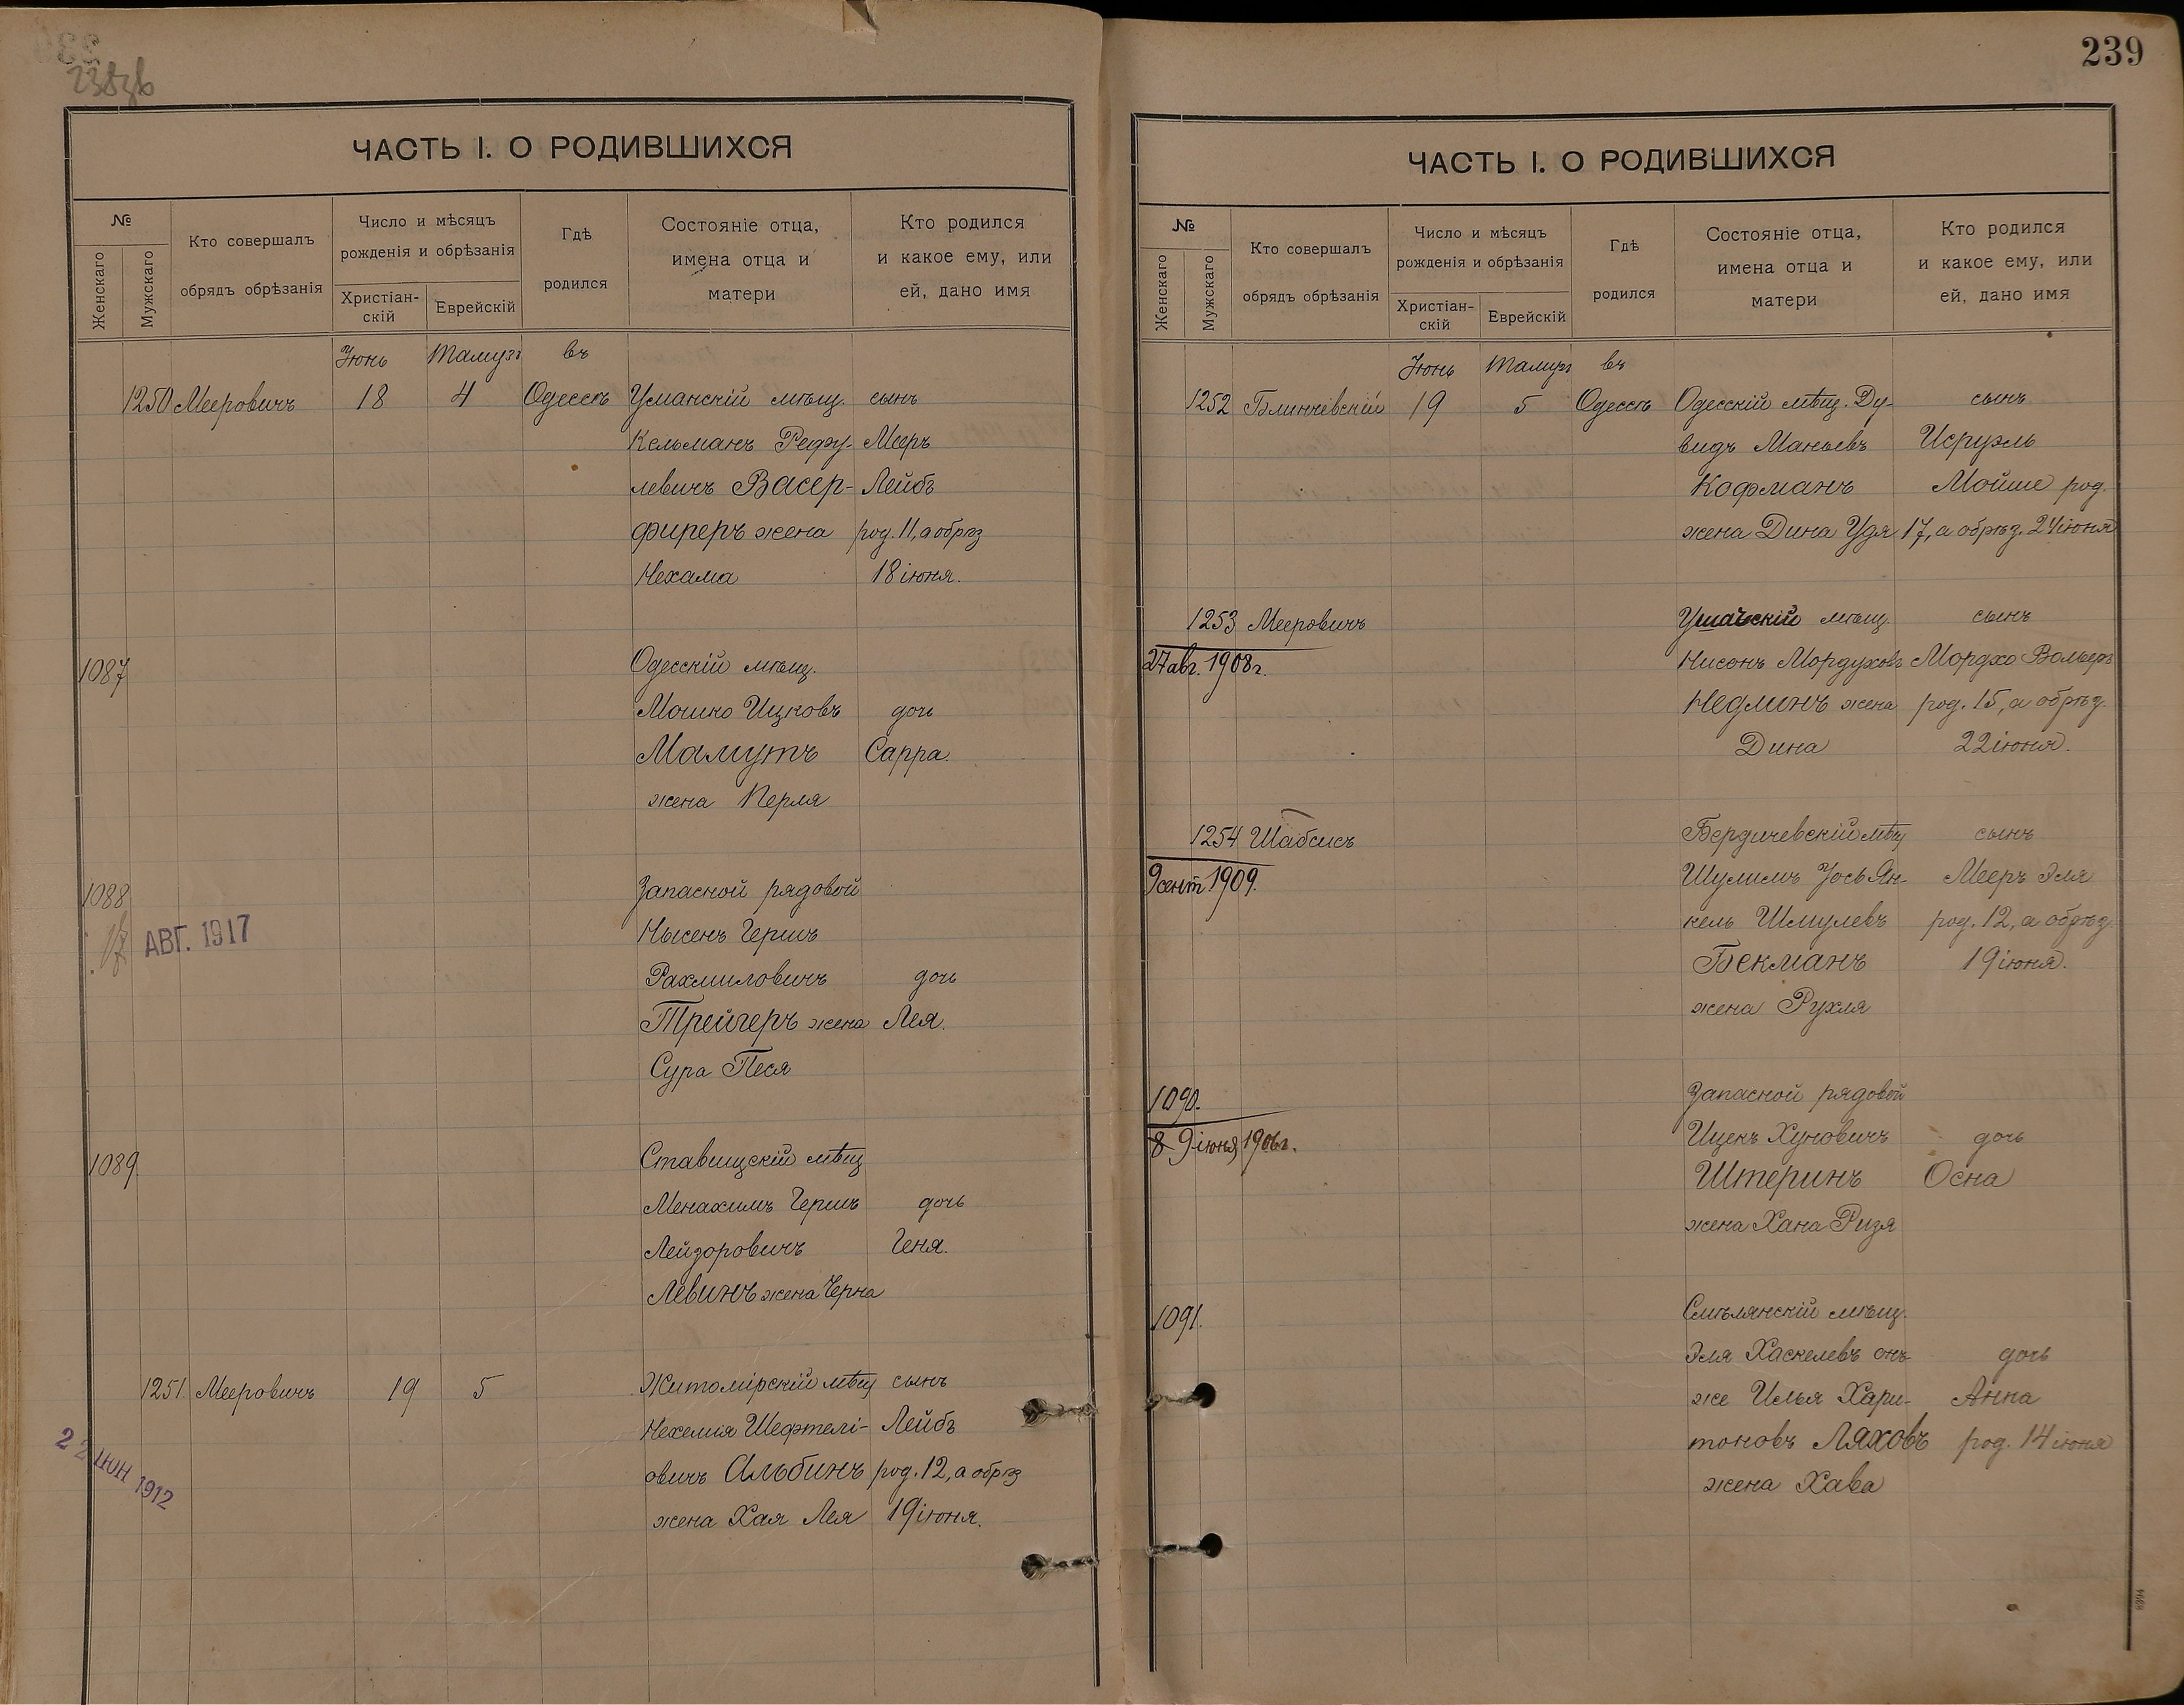 238об
ЧАСТЬ I. О РОДИВШИХСЯ
№
Женскаго
Мужскаго
Кто совершалъ
обрядъ обрѣзанія
Число и мѣсяцъ
рожденія и обрѣзанія
Христіан-
скій
Еврейскій
Гдѣ
родился
Состояніе отца,
имена отца и
матери
Кто родился
и какое ему, или
ей, дано имя
Іюнь Тамузъ въ
1250 Мееровичъ 18 4 Одессѣ Уманскій мѣщ. сынъ
Кельманъ Рефу- Мееръ
левичъ Васер- Лейбъ
фиреръ жена род. 11, а обрѣз
Нехама 18 іюня.
1087 Одесскій мѣщ.
Мошко Ицковъ дочь
Мамутъ Сарра.
жена Перля
1088 Запасной рядовой
АВГ. 1917
Нысенъ Гершъ
Рахмиловичъ дочь
Трейгеръ жена Лея.
Сура Песя
1089 Ставищскій мѣщ
Менахимъ Гершъ дочь
Лейзоровичъ Геня.
Левинъ жена Черна
1251 Мееровичъ 19 5 Житомірскій мѣщ сынъ
22 ІЮН 1912
Нехемія Шефтелі- Лейбъ
овичъ Альбинъ род. 12, а обрѣз
жена Хая Лея 19 іюня.
239
ЧАСТЬ I. О РОДИВШИХСЯ
№
Женскаго
Мужскаго
Кто совершалъ
обрядъ обрѣзанія
Число и мѣсяцъ
рожденія и обрѣзанія
Христіан-
скій
Еврейскій
Гдѣ
родился
Состояніе отца,
имена отца и
матери
Кто родился
и какое ему, или
ей, дано имя
Іюнь Тамузъ въ
1252 Блинчевскій 19 5 Одессѣ Одесскій мѣщ. Ду- сынъ
видъ Маньевъ Исруэль
Кофманъ Мойше род.
жена Дина Удя 17, а обрѣз. 24 іюня
1253 Мееровичъ мѣщ. сынъ
27 авг. 1908 г. Нисонъ Мордуховъ Мордхо Вольфъ
Недлинъ жена род. 15, а обрѣз.
Дина 22 іюня.
1254 Шабсисъ Бердичевскій мѣщ сынъ
9 сент 1909. Шулимъ Іось Ян- Мееръ Эля
кель Шмулевъ род. 12, а обрѣз
Бекманъ 19 іюня.
жена Рухля
1090. Запасной рядовой
8 9 іюня 1906 г. Ицекъ Хуновичъ дочь
Штеринъ Осна
жена Хана Ризя
1091. Смѣлянскій мѣщ.
Эля Хаскелевъ онъ- дочь
же Илья Хари- Анна
тоновъ Ляховъ род. 14 іюня
жена Хава